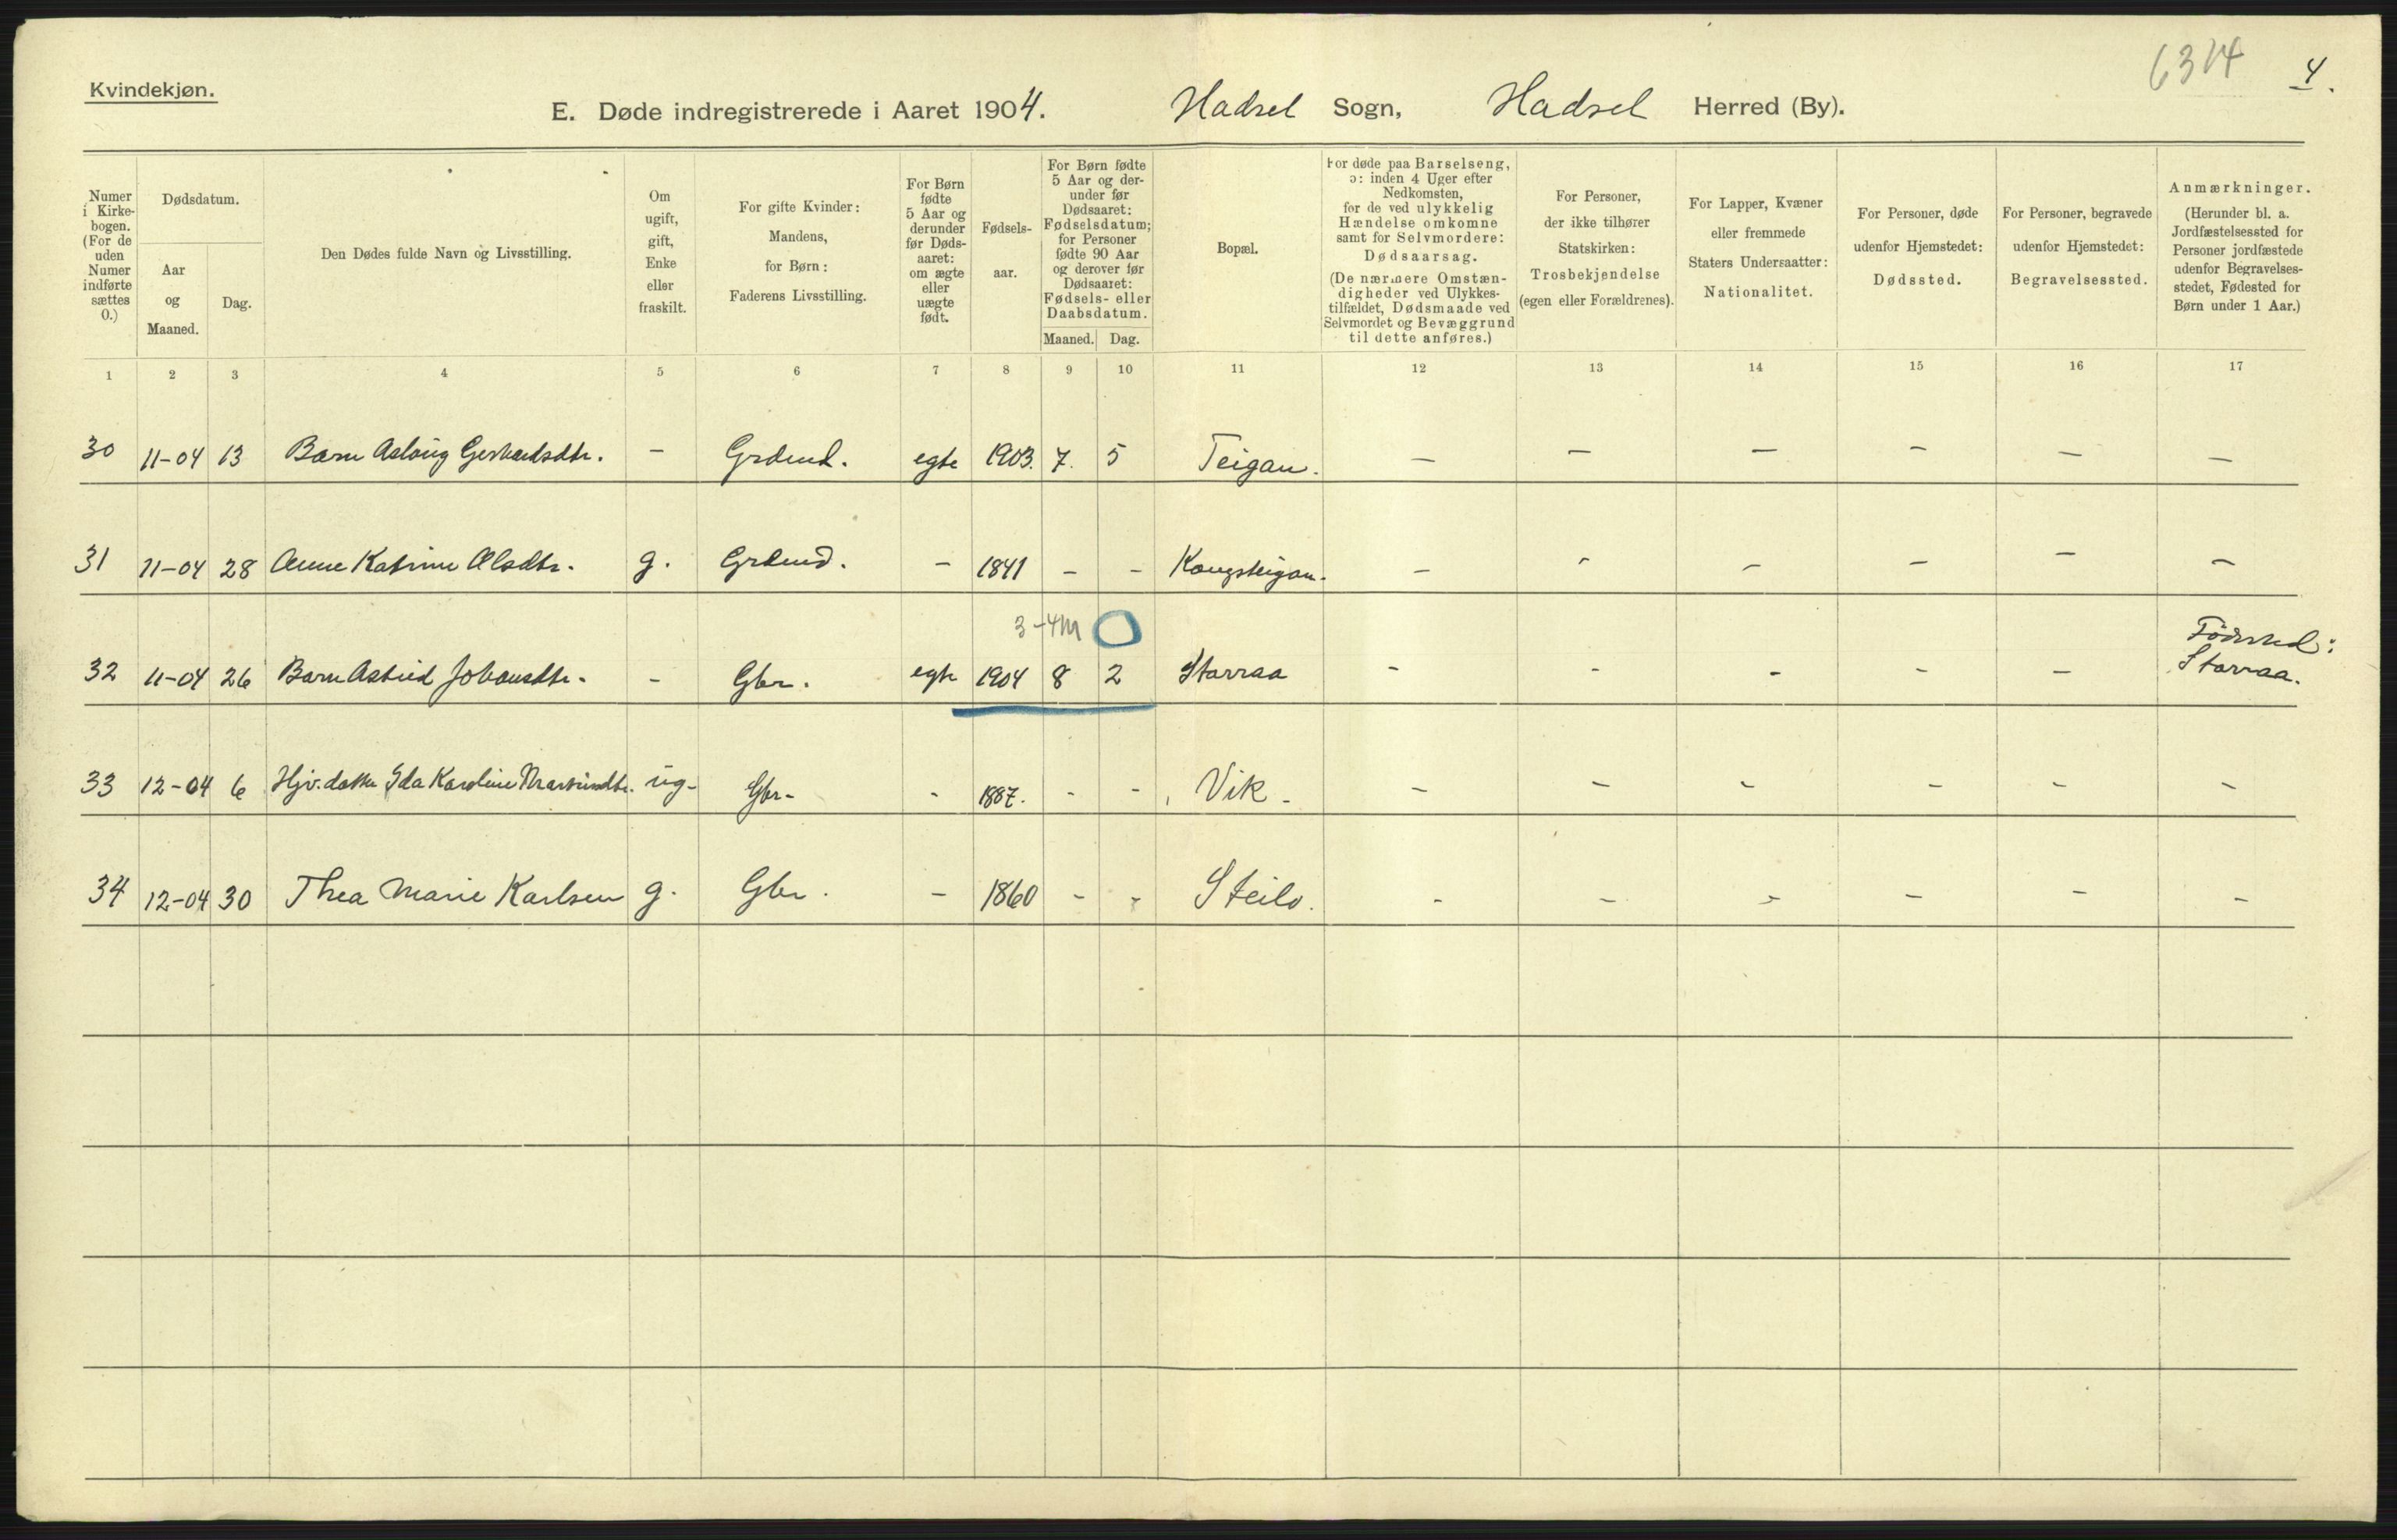 6314
4.
Kvindekjøn.
E. Døde indregistrerede i Aaret 1904. Hadsel Sogn, Hadsel Herred (By).
Numer i Kirke-bogen. (For de uden Numer indførte sættes 0.)
Dødsdatum.
Aar og Maaned.
Dag.
Den Dødes fulde Navn og Livsstilling.
Om ugift, gift, Enke eller fraskilt.
For gifte Kvinder: Mandens, for Børn: Faderens Livsstilling.
For Børn fødte 5 Aar og derunder før Døds-aaret: om ægte eller uægte født.
Fødsels-aar.
For Børn fødte 5 Aar og der-under før Dødsaaret: Fødselsdatum; for Personer fødte 90 Aar og derover før Dødsaaret: Fødsels- eller Daabsdatum.
Maaned. Dag.
Bopæl.
For døde paa Barselseng, ɔ: inden 4 Uger efter Nedkomsten, for de ved ulykkelig Hændelse omkomne samt for Selvmordere: Dødsaarsag. (De nærmere Omstæn-digheder ved Ulykkes-tilfældet, Dødsmaade ved Selvmordet og Bevæggrund til dette anføres.)
For Personer, der ikke tilhører Statskirken: Trosbekjendelse (egen eller Forældrenes).
For Lapper, Kvæner eller fremmede Staters Undersaatter: Nationalitet.
For Personer, døde udenfor Hjemstedet: Dødssted.
For Personer, begravede udenfor Hjemstedet: Begravelsessted.
Anmærkninger. (Herunder bl. a. Jordfæstelsessted for Personer jordfæstede udenfor Begravelses-stedet, Fødested for Børn under 1 Aar.)
1 2 3 4 5 6 7 8 9 10 11 12 13 14 15 16 17
30 11-04 13 Barn Aslaug Gerhardsdtr. - Grdmd. egte 1903. 7. 5 Teigan. - - - - - -
31 11-04 28 Anne Katrine Olsdtr. g. Grdmd. - 1841 - - Kongsteigan. - - - - - -
3-4M
32 11-04 26 Barn Astrid Johansdtr. - Gbr. egte 1904 8 2 Starraa - - - - - Födested: Starraa.
33 12-04 6 Hjv. datter Ida Karoline ug- Gbr- - 1887. - - Vik - - - - - - -
34 12-04 30 Thea Marie Karlsen g. Gbr. - 1860 - - Steilo. - - - - - -